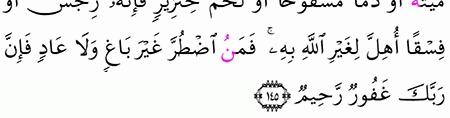 مَيْتَةً أَوْ دَمًا مَّسْفُوحًا أَوْ لَحْمَ خِنزِيرٍ فَإِنَّهُۥ رِجْسٌ أَوْ
فِسْقًا أُهِلَّ لِغَيْرِ ٱللَّهِ بِهِۦ ۚ فَمَنُ ٱضْطُرَّ غَيْرَ بَاغٍ وَلَا عَادٍ فَإِنَّ
رَبَّكَ غَفُورٌ رَّحِيمٌ ﴿١٤٥﴾